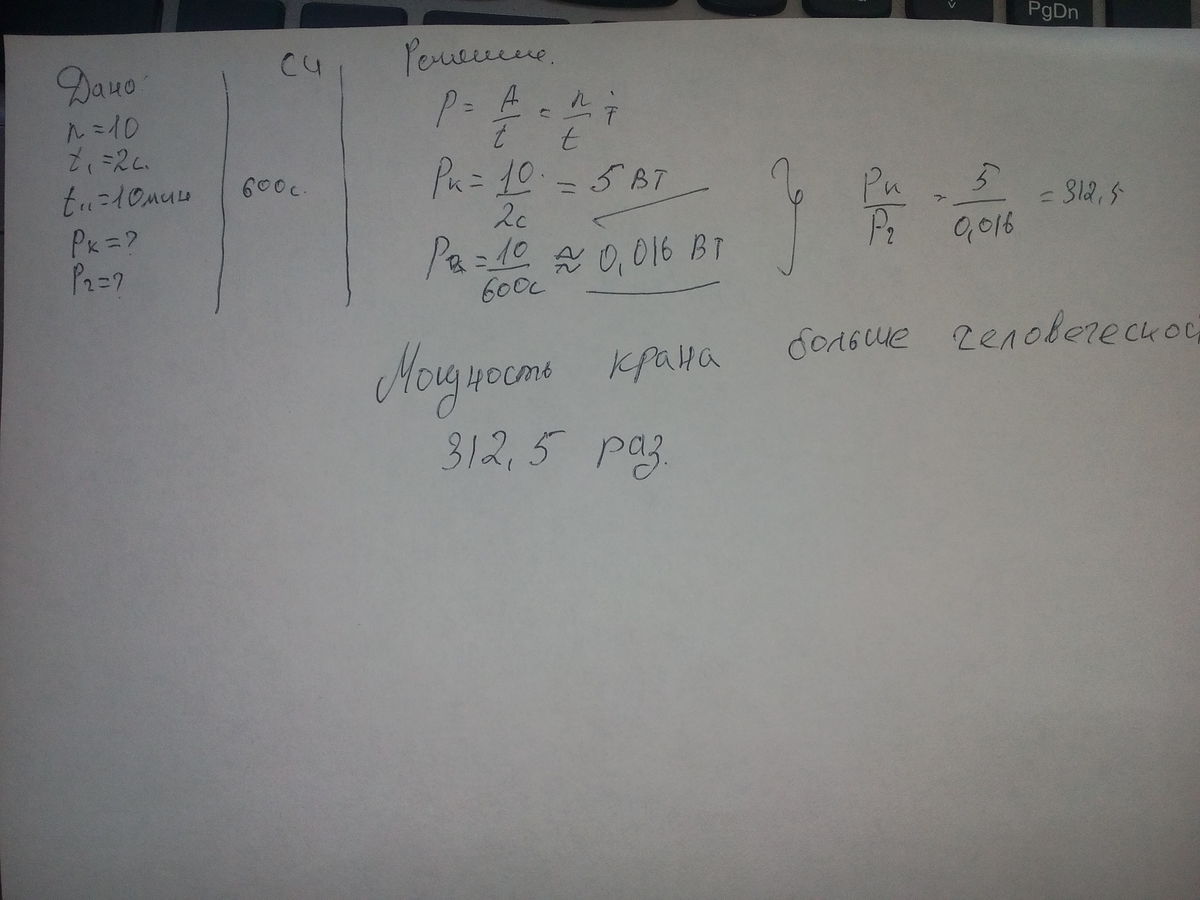 PgDn
Дано:
n = 10
t₁ = 2с.
t₁₁ = 10мин
Pк = ?
P₂ = ?
СИ
600с.
Решение.
P = A/t = n/t
Pк = 10/2с = 5 Вт
P = 10/600с ≈ 0,016 Вт
Pк/P₂ = 5/0,016 = 312,5
Мощность крана больше
312,5 раз.